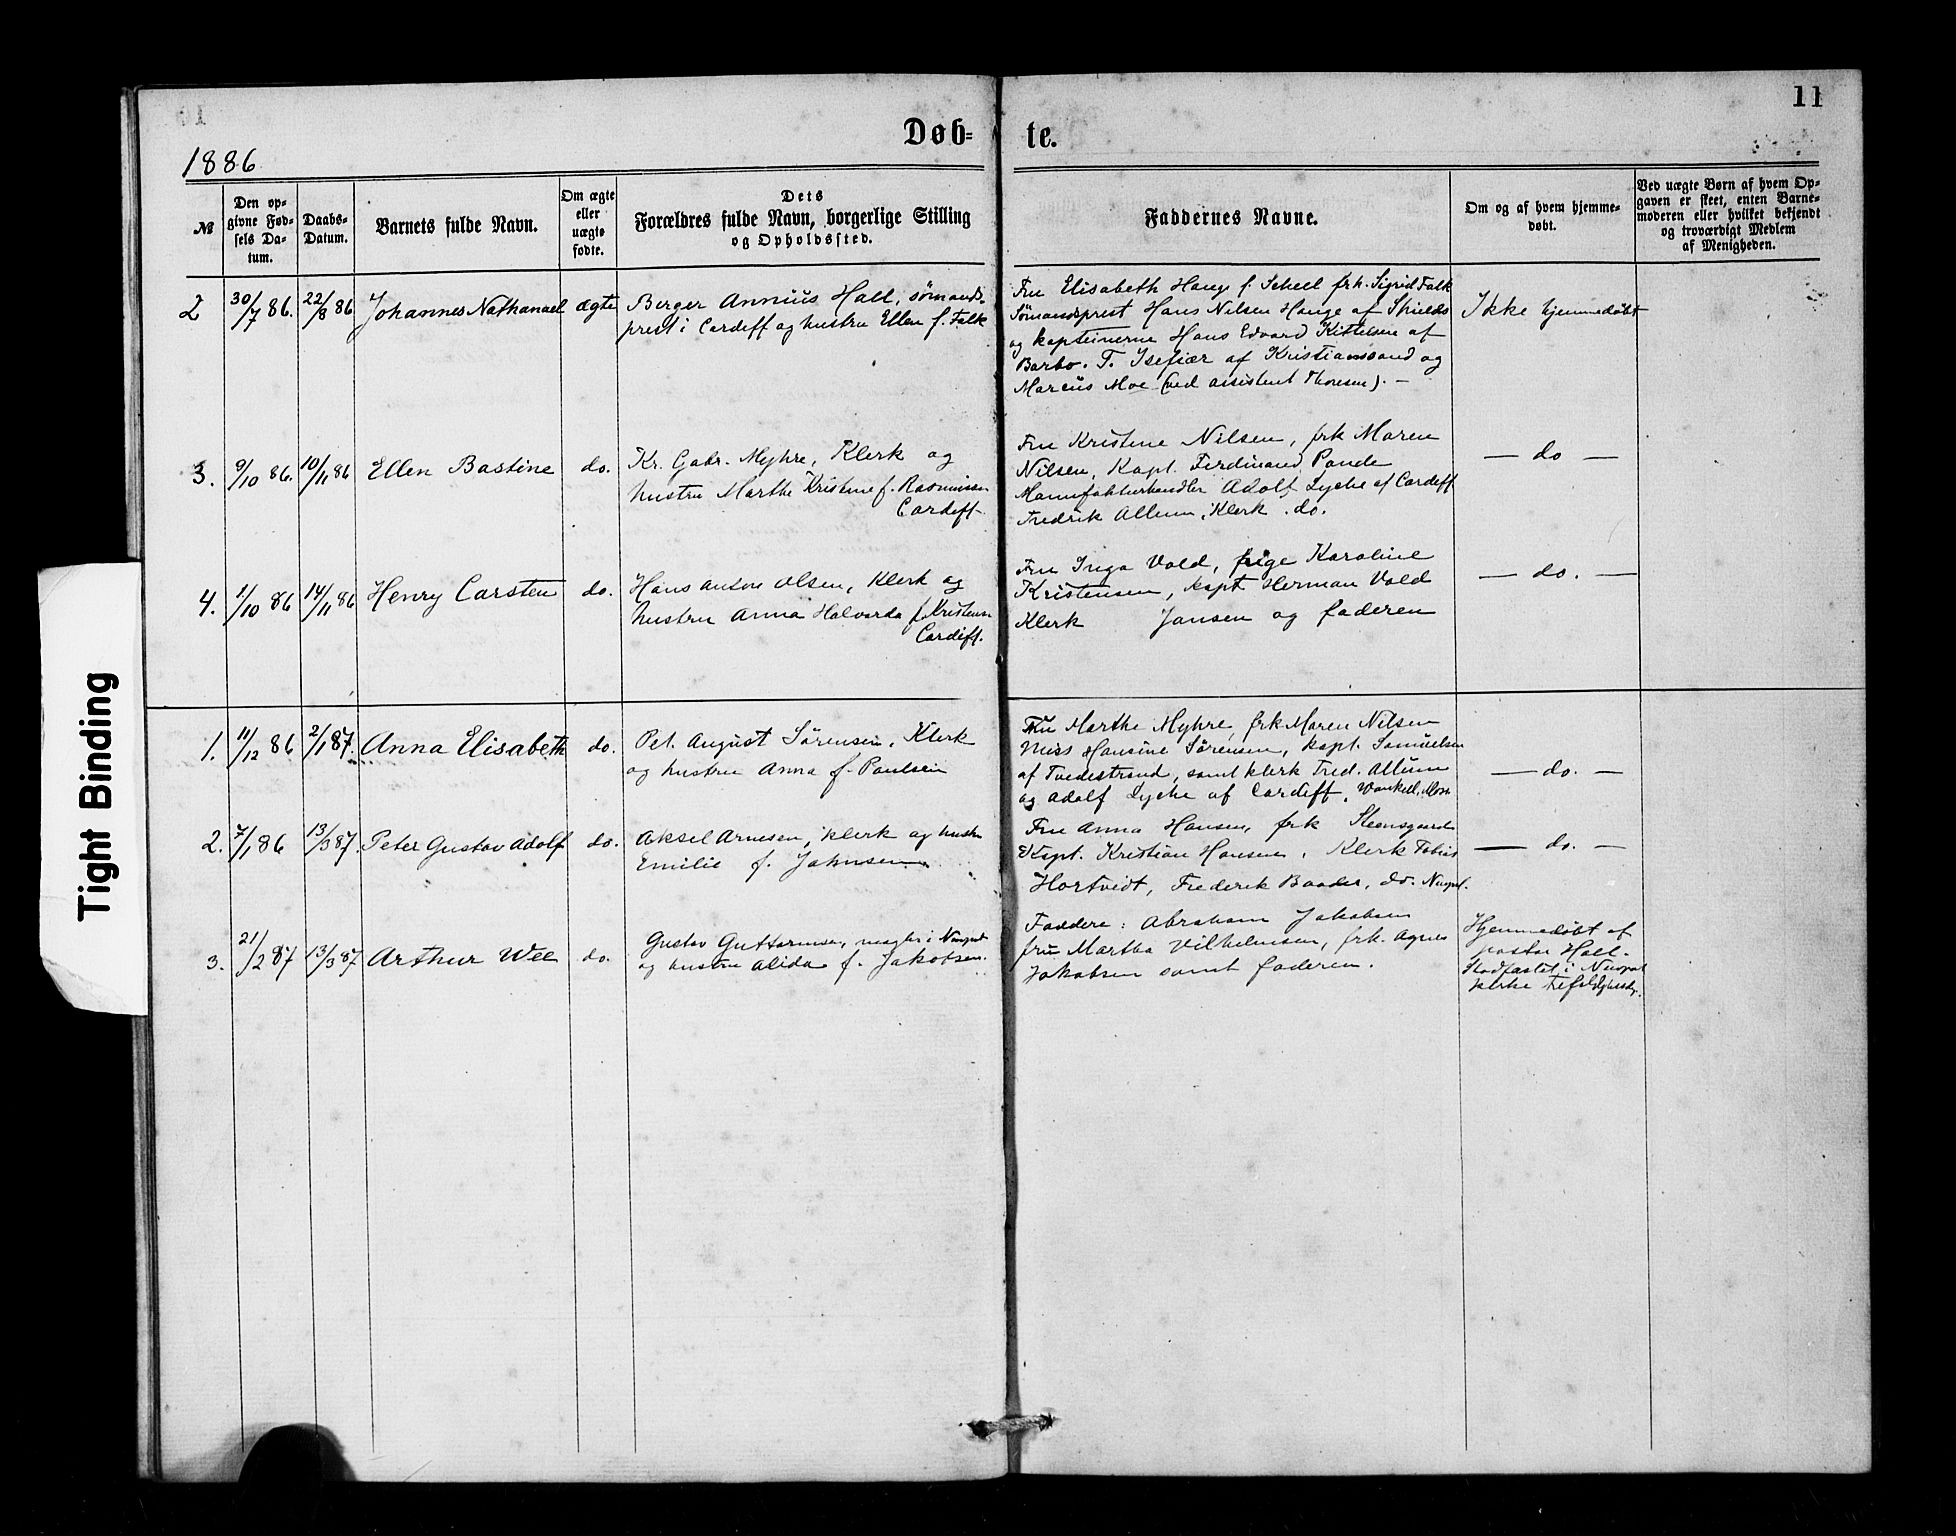 11
Døb-
te.
1886
№
Den op-
givne Fød-
sels Da-
tum.
Daabs-
Datum.
Barnets fulde Navn.
Om ægte
eller
uægte
fødte.
Dets
Forældres fulde Navn, borgerlige Stilling
og Opholdssted.
Faddernes Navne.
Om og af hvem hjemme-
døbt.
Ved uægte Børn af hvem Op-
gaven er skeet, enten Barne-
moderen eller hvilket bekjendt
og troværdigt Medlem
af Menigheden.
2 30/7 86. 22/8 86 Johannes Nathanael ægte
Berger Annius Hall, sømands-
prest i Cardiff og hustru Ellen f. Falk
Fru Elisabeth Hauge f. Scheel frk. Sigrid Falk
Sømandsprest Hans Nilsen Hauge af Shields
og kapteinerne Hans Edvard Kittelsen af
Barbo. T. Isefiær af Kristianssand og
Marcus Moe (ved assistent Thoresen). —
Ikke hjemmedøbt
3. 9/10 86. 10/11 86 Ellen Bastine do.
Kr. Gabr. Myhre, Klerk og
hustru Marthe Kristine f. Rasmussen
Cardiff.
Fru Kristine Nilsen, frk Maren
Nilsen, Kapt. Ferdinand Pande
Manufakturhandler Adolf Lyche af Cardiff
Fredrik Allum, Klerk . do.
— do —
4. 1/10 86 14/11 86 Henry Carsten do.
Hans Anton Olsen, Klerk og
hustru Anna Halvorda f. Kristensen
Cardiff.
Fru Inga Vold, frige Karoline
Kristensen, kapt Herman Vold
Klerk Jansen og faderen
— do. —
1. 11/12 86 2/1 87. Anna Elisabeth do.
Pet. August Sørensen, Klerk
og hustru Anna f. Paulsen
Fru Marthe Myhre, frk Maren Nilsen
Miss Hansine Sørensen, kapt. Samuelsen
af Tvedestrand, samt klerk Fred. Allum
og Adolf Lyche af Cardiff.
— do. —
2. 7/1 86 13/3 87. Peter Gustav Adolf do.
Aksel Arnesen, klerk og hustru
Emilie f. Jahnsen
Fru Anna Hansen, frk Steensgaard
Kapt. Kristian Hansen, Klerk Tobias
Hortvedt, Frederik Baader, do. Newport.
— do. —
3. 21/2 87 13/3 87 Arthur Wee do.
Gustav Guttormsen, mægler i Newport
og hustru Alida f. Jakobsen.
Faddere: Abraham Jakobsen
fru Martha Vilhelmsen, frk. Agnes
Jakobsen samt faderen.
Hjemmedøbt af
pastor Hall.
Stadfæstet i Newport
kirke
Tight Binding